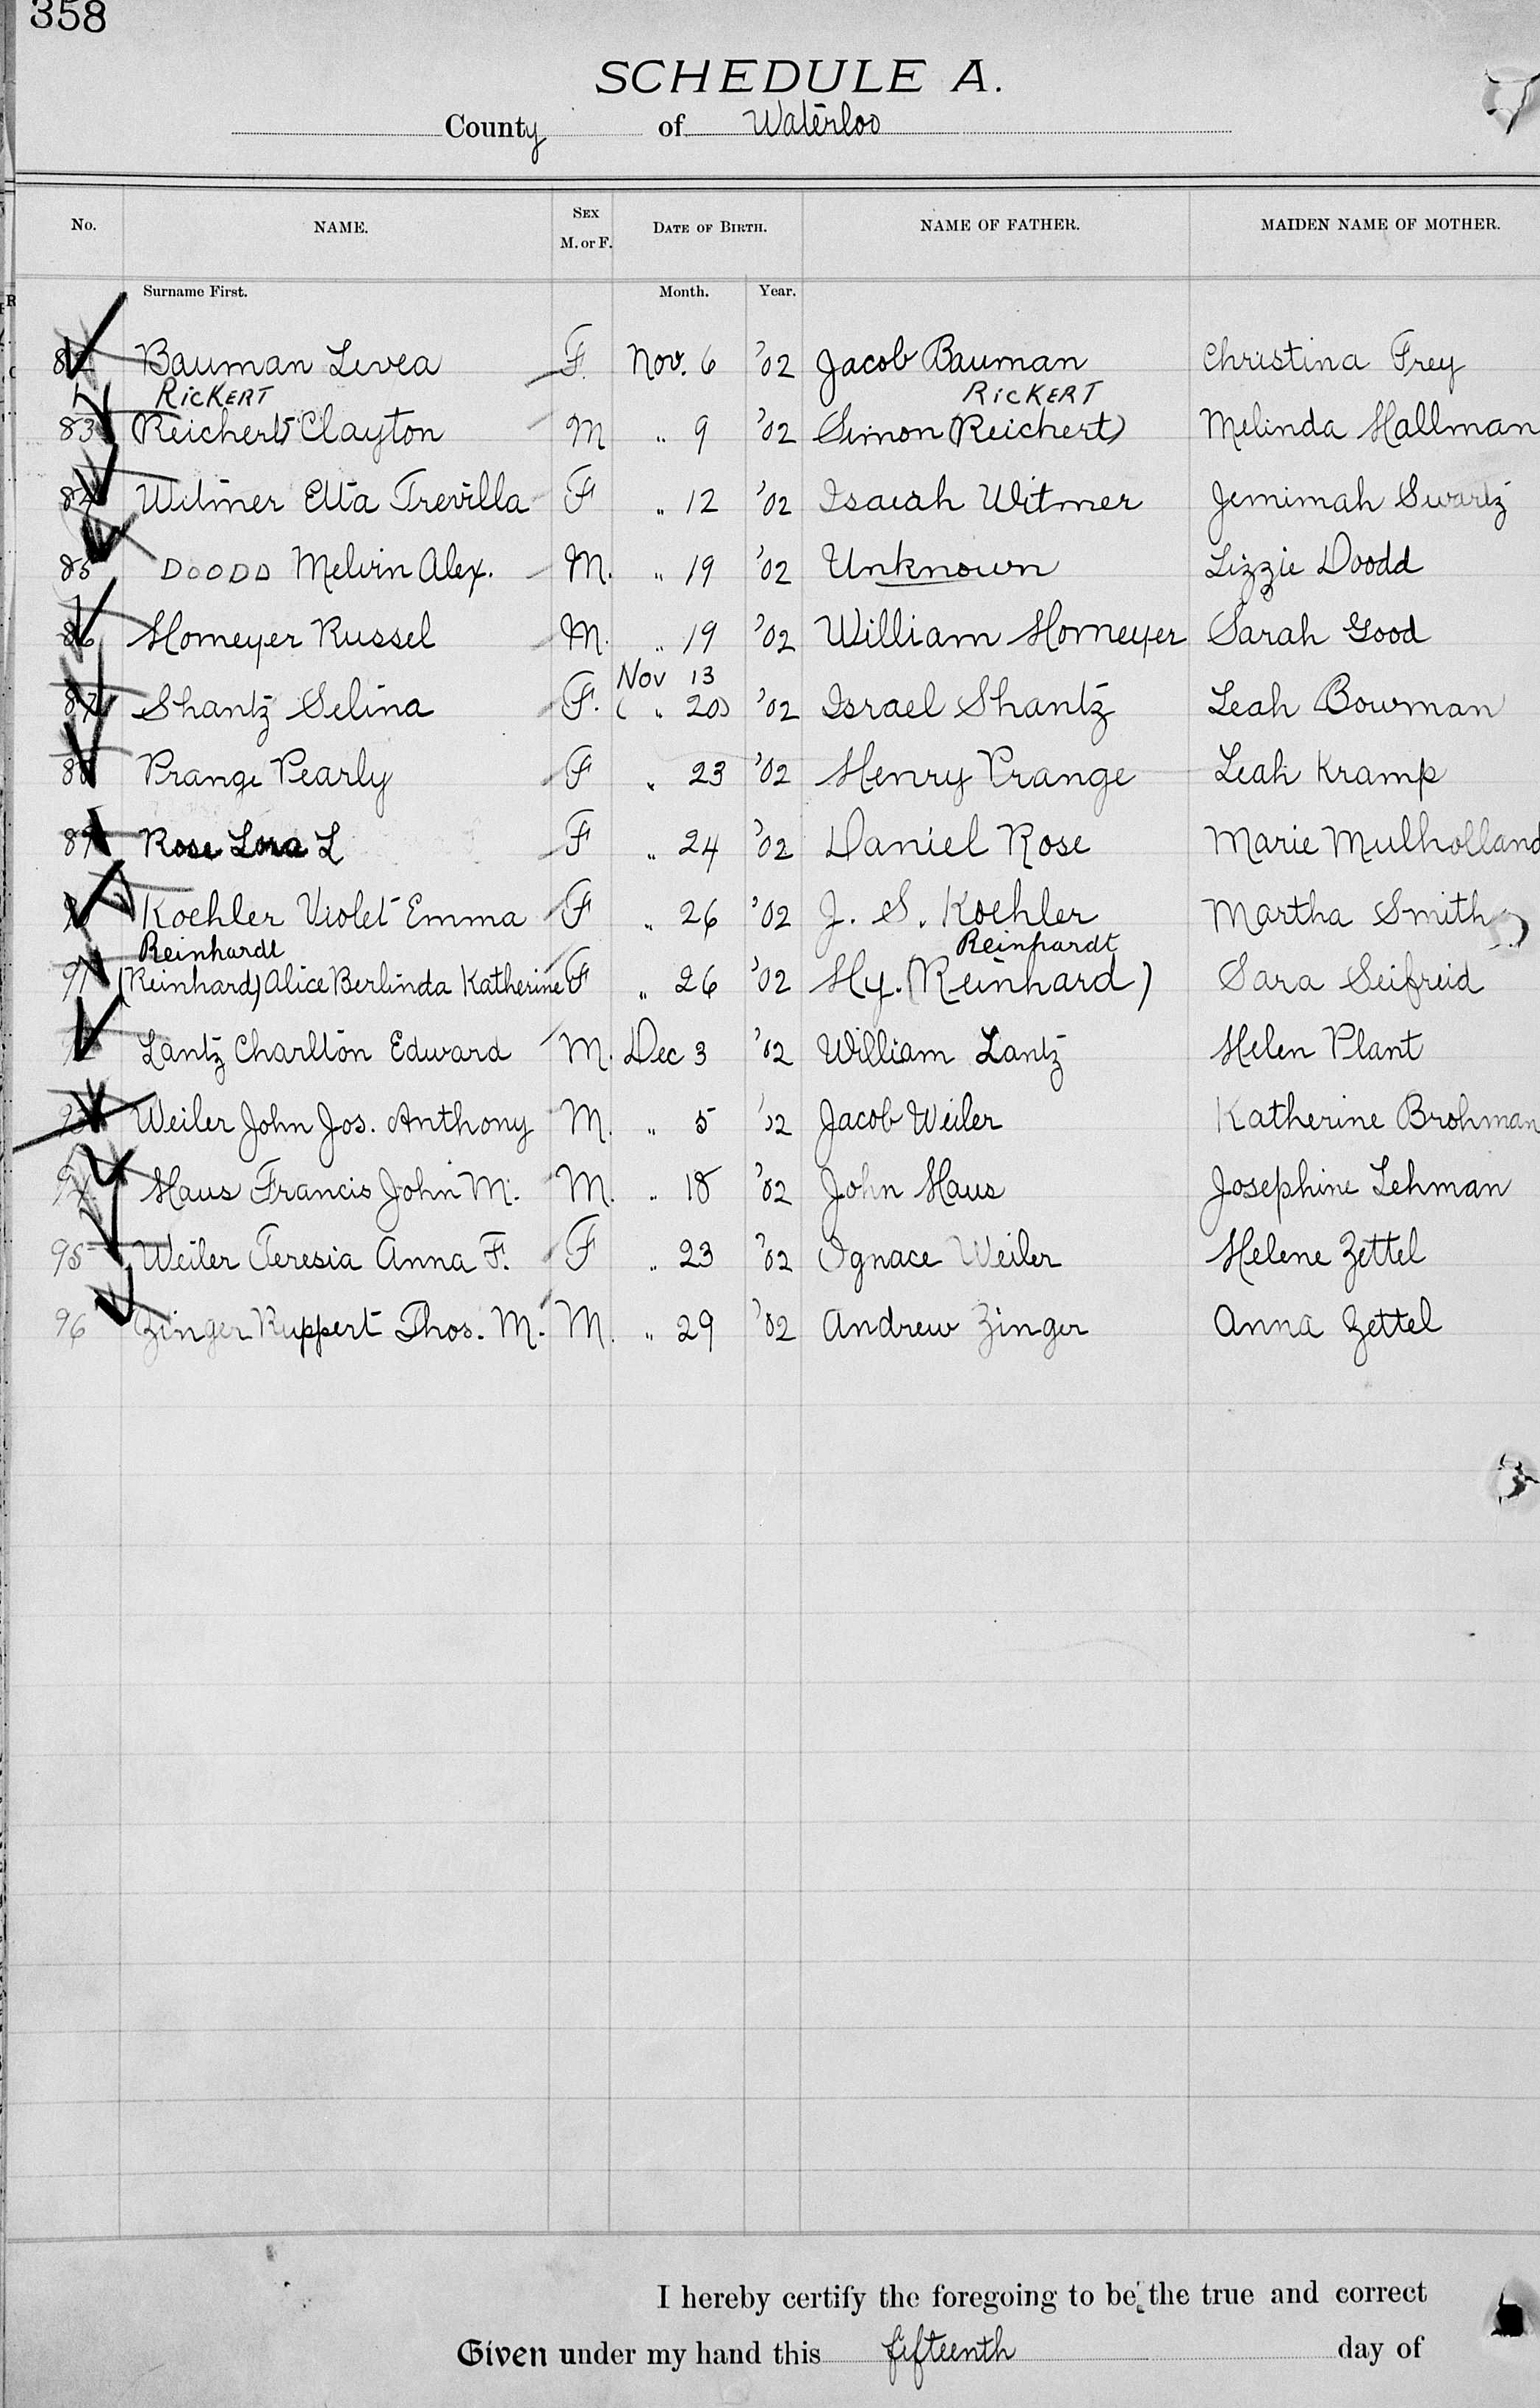 358
SCHEDULE A.
County of Waterloo
No. NAME. SEX M. or F. DATE OF BIRTH. NAME OF FATHER. MAIDEN NAME OF MOTHER.
Surname First. Month. Year.
82 Bauman Livea F. Nov. 6 '02 Jacob Bauman Christina Frey
RICKERT RICKERT
83 (Reichert) Clayton M " 9 '02 Simon (Reichert) Melinda Hallman
84 Witmer Etta Trevilla F " 12 '02 Isaiah Witmer Jemimah Swartz
85 DOODD Melvin Alex. M. " 19 '02 Unknown Lizzie Doodd
86 Homeyer Russel M. " 19 '02 William Homeyer Sarah Good
Nov 13
87 Shantz Selina F. ( " 20) '02 Israel Shantz Leah Bowman
88 Prange Pearly F " 23 '02 Henry Prange Leah Kramp
89 Rose Lora L F " 24 '02 Daniel Rose Marie Mulholland
Koehler Violet Emma F " 26 '02 J. S. Koehler Martha Smith
Reinhardt Reinhardt
91 (Reinhard) Alice Berlinda Katherine F " 26 '02 Hy. (Reinhard) Sara Seifreid
Lantz Charlton Edward M. Dec 3 '02 William Lantz Helen Plant
93 Weiler John Jos. Anthony M. " 5 '02 Jacob Weiler Katherine Brohman
94 Haus Francis John M. M. " 18 '02 John Haus Josephine Lehman
95 Weiler Teresia Anna F. F " 23 '02 Ignace Weiler Helene Zettel
96 Zinger Ruppert Thos. M. M. " 29 '02 Andrew Zinger Anna Zettel
I hereby certify the foregoing to be the true and correct
Given under my hand this fifteenth day of